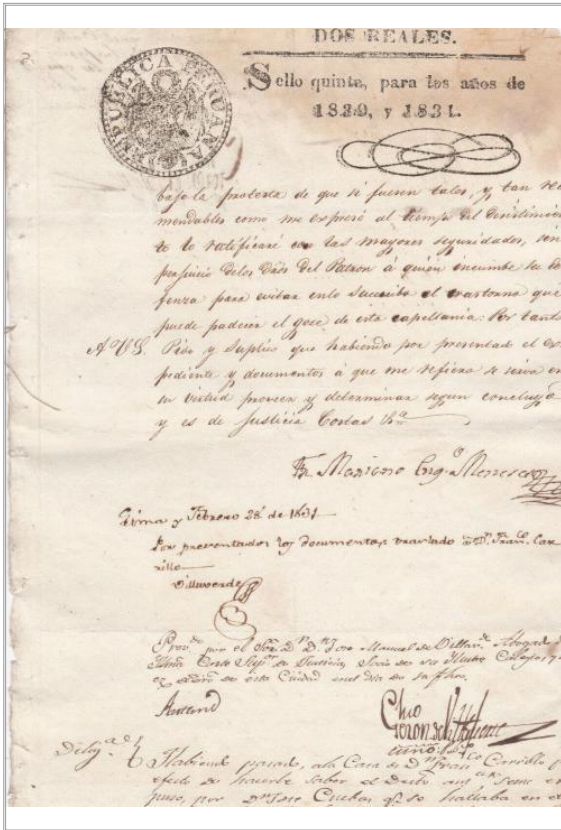 DOS REALES.
REPUBLICA PERUANA
Sello quinto, para los años de
1830, y 1831.
bajo la protesta de que si fueren tales, y tan reco
mendables como me expresó al tiempo del desistimien
to lo ratificaré con las mayores seguridades, sin
perjuicio delos dros del Patron á quien incumbe su de
fenza para evitar enlo sucesibo el trastorno que
puede padecer el goce de esta capellania: Por tanto
A V S. Pido y Suplico que habiendo por presentado el ex
pediente y documentos á que me refiero se sirva en
su virtud proveer y determinar segun concluyo
y es de Justicia Costas
Fr. Mariano Meneses
Lima y Febrero 28 de 1831
Por presentados los documentos traslado á Dn. Franco. Car
rillo
Villaverde
por el Sor. Dr. Dn. Jose Manuel de Abogado
de Justicia, de su Ilustre Colegio, y
de esta Ciudad enel dia de su fha.
Habiendo pasado, ala Casa de Dn Franco Carrillo
efecto de hacerle saber el Decto
puso, por Dn Jose Cuebas qe. se hallaba en